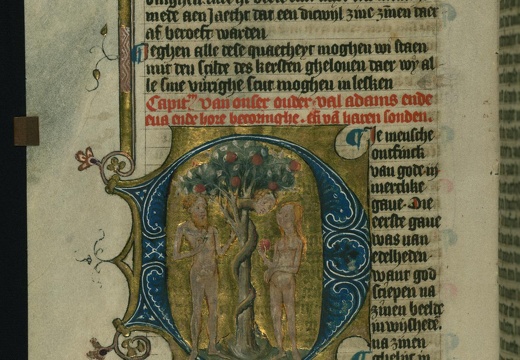 mede aen Jaecht dat een dicwijl zine zinen daer
af beroeft warden
Jeghen alle dese quaetheyt moghen wi staen
mit den scilde des kersten ghelouen daer wy al
le sine vurighe scut moghen in lesken
Capitm van onser ouder val adams ende
eua ende hore becoringhe. en vā haren sonden.
De mensche
ontfinck
van gode in
merclike
gaue. Die
eerste gaue
was van
edelheden.
want god
sciepen na
zinen beelde
na zinen
ghelijc